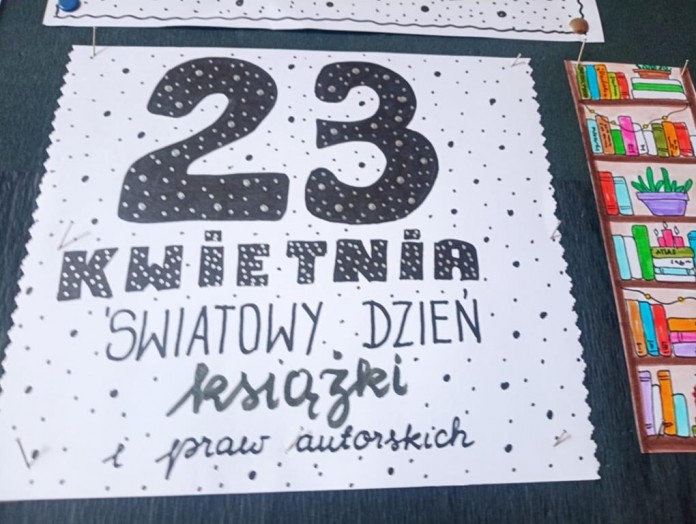 23
KWIETNIA
ŚWIATOWY DZIEŃ
książki
i praw autorskich
ATLAS